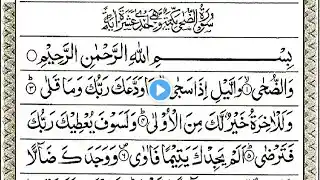 سُوْرَةُ الضُّحٰى مَكِّيَّةٌ وَّهِيَ اِحْدٰى عَشَرَةَ اٰيَةً
بِسْمِ اللهِ الرَّحْمٰنِ الرَّحِيْمِ
وَالضُّحٰى ۱ وَالَّيْلِ اِذَا سَجٰى ۲ مَا وَدَّعَكَ رَبُّكَ وَمَا قَلٰى ۳
وَلَلْاٰخِرَةُ خَيْرٌ لَّكَ مِنَ الْاُوْلٰى ۴ وَلَسَوْفَ يُعْطِيْكَ رَبُّكَ
فَتَرْضٰى ۵ اَلَمْ يَجِدْكَ يَتِيْمًا فَاٰوٰى ۶ وَوَجَدَكَ ضَآلًّا